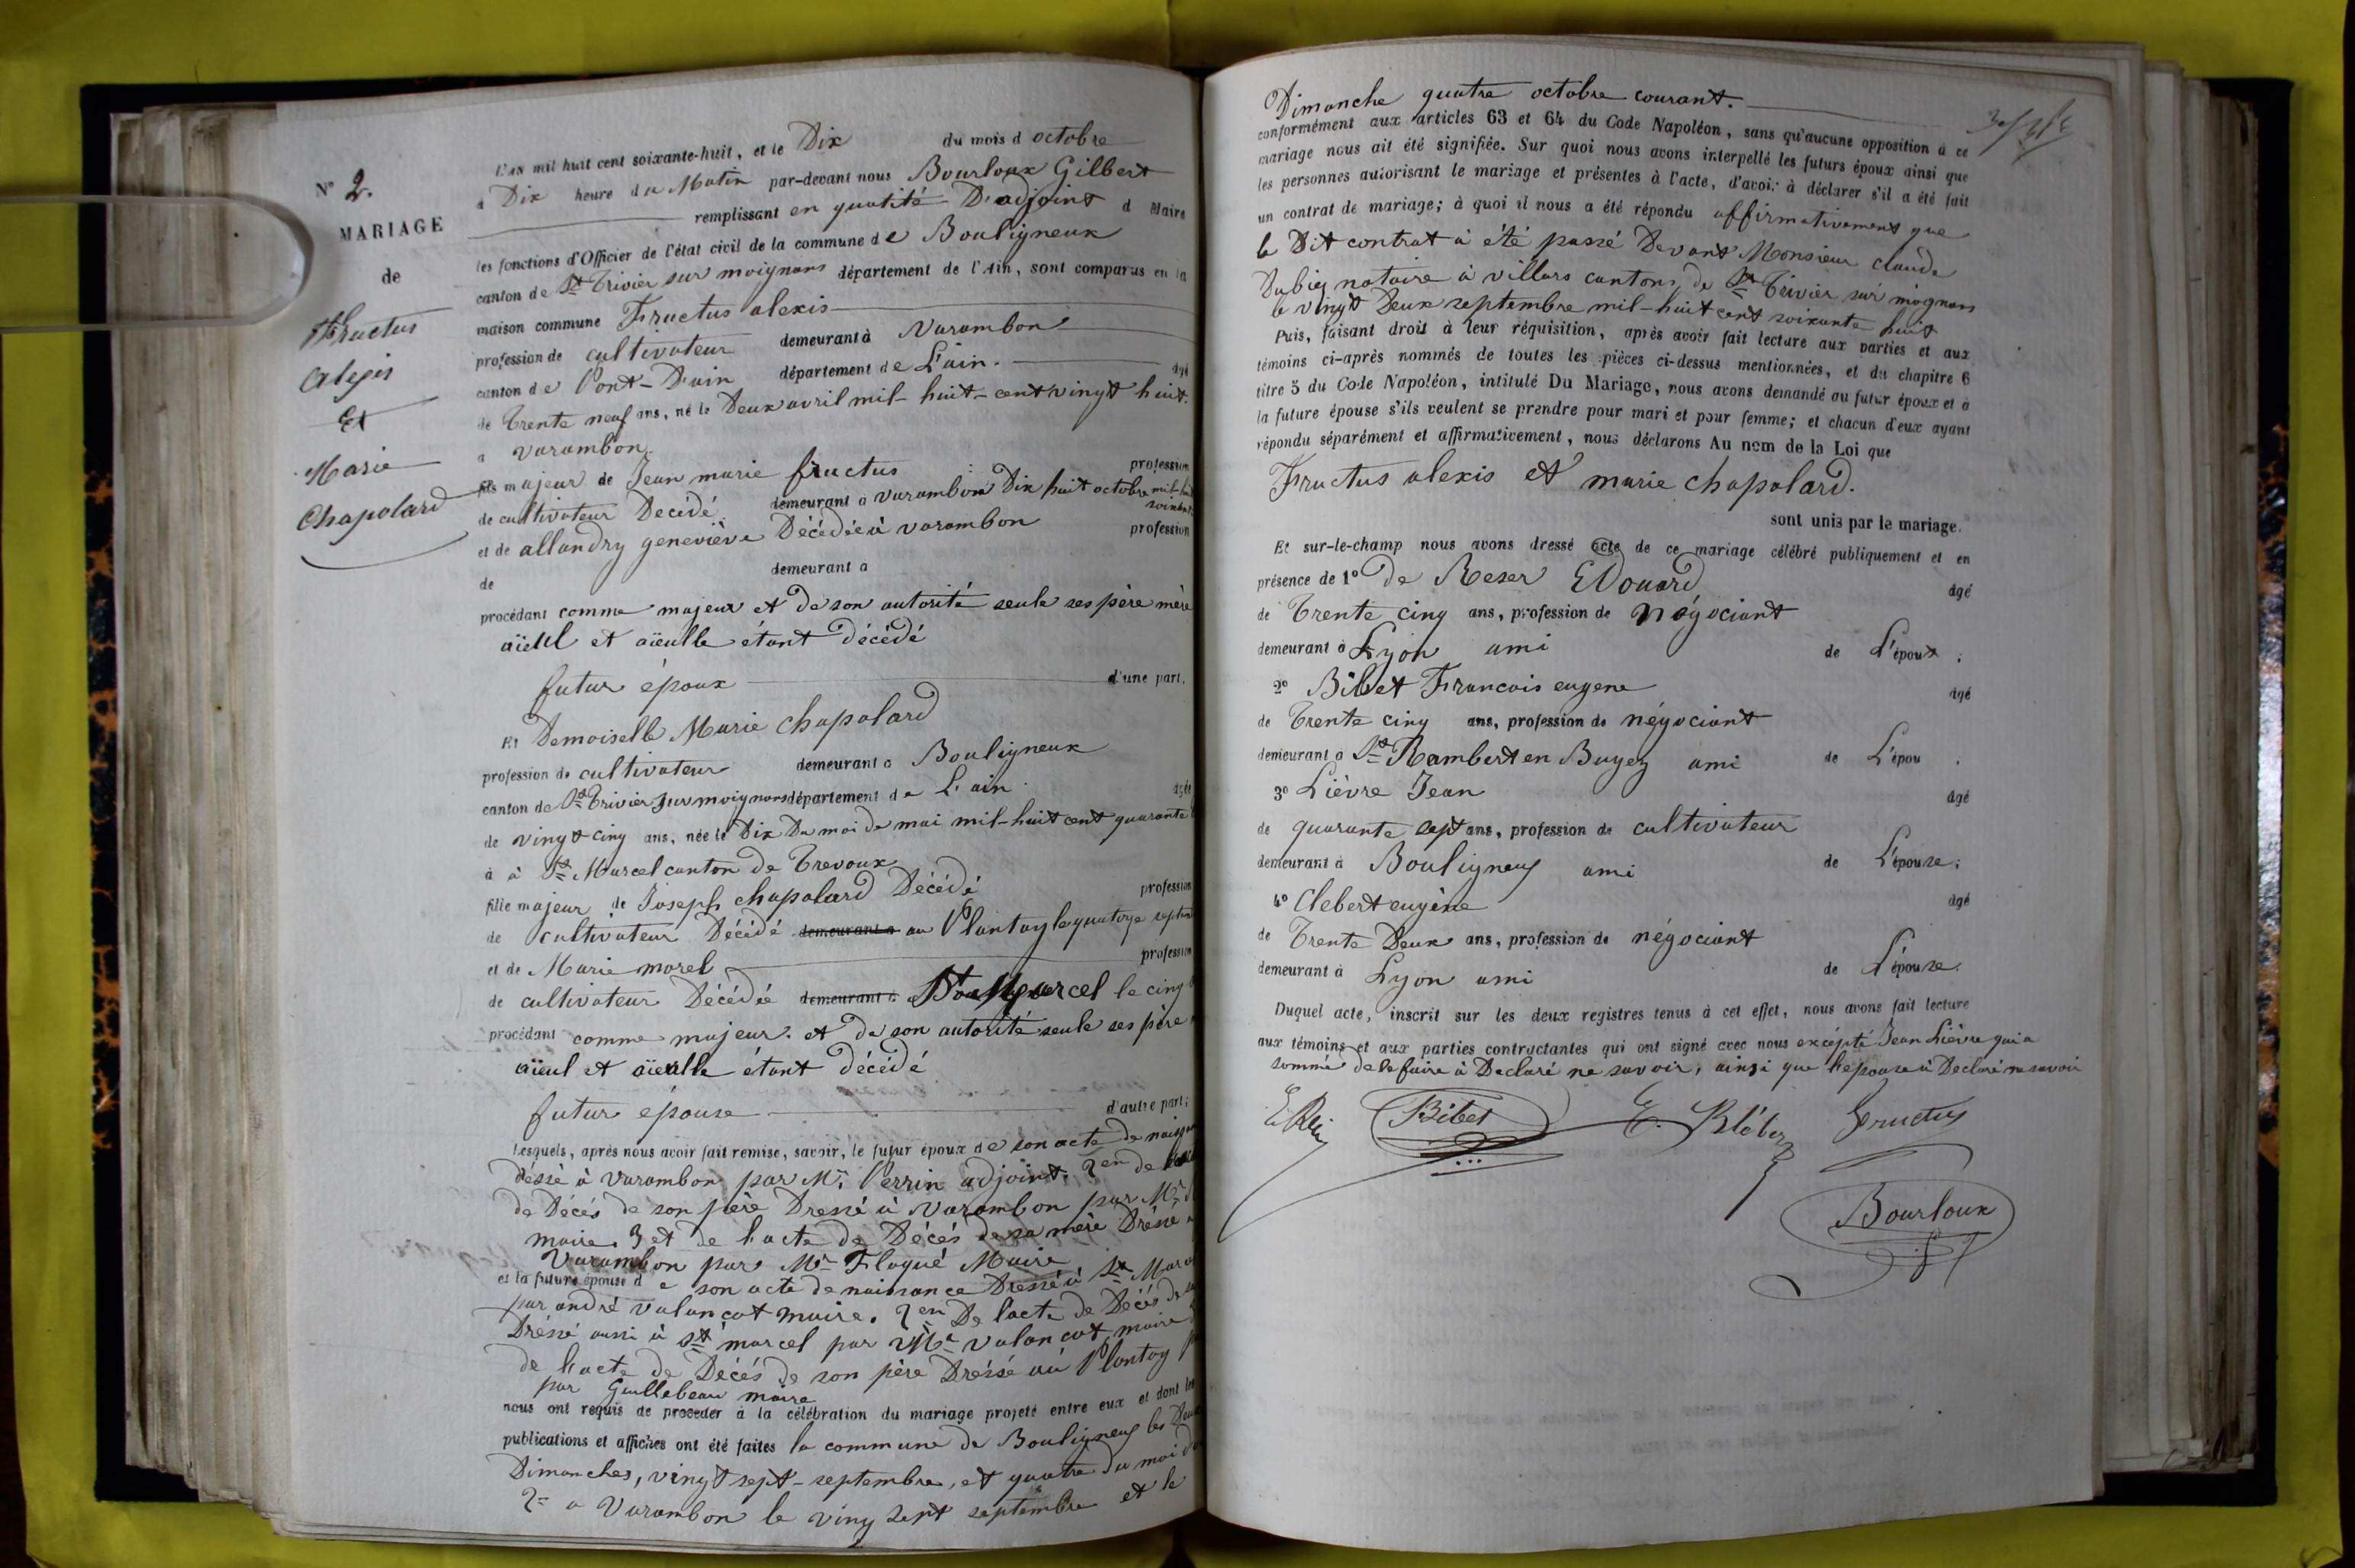 N° 2.
MARIAGE
de
Fructus
Alexis
Et
Marie
Chapolard
L'AN mil huit cent soixante-huit, et le Dix du mois d octobre
à Dix heure du Matin par-devant nous Bourloux Gilbert
remplissant en qualité D'adjoint d Maire
les fonctions d'Officier de l'état civil de la commune de Bouligneux
canton de St Trivier sur moignans département de l'Ain, sont comparus en la
maison commune Fructus alexis
profession de cultivateur demeurant à Varambon
canton de Pont-D'ain département de L'ain. âgé
de Trente neuf ans, né le Deux avril mil-huit-cent vingt huit.
à varambon.
fils majeur de Jean marie fructus profession
de cultivateur Decédé demeurant à varambon Dix huit octobre mil-huit
soixante
et de allondry geneviève Décédée à varambon profession
de demeurant à
procédant comme majeur et de son autorité seule ses père mère
aïeul et aïeulle étant décédé
futur époux d'une part,
Et Demoiselle Marie chapolard
profession de cultivateur demeurant à Bouligneux
canton de St Trivier sur moignans département de L'ain. âgée
de vingt cinq ans, née le Dix Du moi de mai mil-huit cent quarante
à à St Marcel canton de Trevoux
fille majeur de Joseph chapolard Décédé profession
de cultivateur Décédé demeurant à au Plantay le quatorze septem
et de Marie morel profession
de cultivateur Décédée demeurant à St Marcel le cinq
procédant comme majeur. et de son autorité seule ses père
aïeul et aïeulle étant décédé
futur épouse d'autre part;
Lesquels, après nous avoir fait remise, savoir, le futur époux de son acte de naissan
dréssé à varambon par Mr Perrin adjoint. 2en de
de Décés de son père Dressé à varambon par Mr
maire. 3 et de l'acte de Décés de sa mère Dréssé
Varambon par Mr Floqué Maire
et la future épouse d e son acte de naissance Dressé à St Marcel
par andré valançot maire. 2en De l'acte de Décés de
Dréssé aussi à St marcel par Mr valançot maire
de l'acte de Décés de son père Dréssé au Plantay
par Guillebeau maire
nous ont requis de procéder à la célébration du mariage projeté entre eux et dont les
publications et affiches ont été faites la commune de Bouligneux les Deux
Dimanches, vingt sept-septembre, et quatre du moi d
2e a Varambon le ving sept septembre et le
Dimanche quatre octobre courant.
conformément aux articles 63 et 64 du Code Napoléon, sans qu'aucune opposition à ce
mariage nous ait été signifiée. Sur quoi nous avons interpellé les futurs époux ainsi que
les personnes autorisant le mariage et présentes à l'acte, d'avoir à déclarer s'il a été fait
un contrat de mariage; à quoi il nous a été répondu affirmativement que
le Dit contrat à été passé Devant Monsieur claude
Dubiez notaire à villars cantons de St Trivier sur mognans
le vingt Deux septembre mil-huit cent soixante huit
Puis, faisant droit à leur réquisition, après avoir fait lecture aux parties et aux
témoins ci-après nommés de toutes les pièces ci-dessus mentionnées, et du chapitre 6
titre 5 du Code Napoléon, intitulé Du Mariage, nous avons demandé au futur époux et à
la future épouse s'ils veulent se prendre pour mari et pour femme; et chacun d'eux ayant
répondu séparément et affirmativement, nous déclarons Au nom de la Loi que
Fructus alexis et marie chapolard.
sont unis par le mariage.
Et sur-le-champ nous avons dressé acte de ce mariage célébré publiquement et en
présence de 1° De Reser Edouard âgé
de Trente cinq ans, profession de négociant
demeurant à Lyon ami de L'époux ;
2° Bibet Francois eugene âgé
de Trente cinq ans, profession de négociant
demeurant à St Rambert en Bugey ami de L'épou ;
3° Lièvre Jean âgé
de quarante sept ans, profession de cultivateur
demeurant à Bouligneux ami de L'épouse;
4° Clebert eugène âgé
de Trente Deux ans, profession de négociant
demeurant à Lyon ami de L'épouse.
Duquel acte, inscrit sur les deux registres tenus à cet effet, nous avons fait lecture
aux témoins et aux parties contractantes qui ont signé avec nous excépté Jean Lièvre qui a
sommé de le faire à Declaré ne savoir, ainsi que l'epouse à Declaré ne savoir
Bibet E. Kléber Fructus
Bourloux